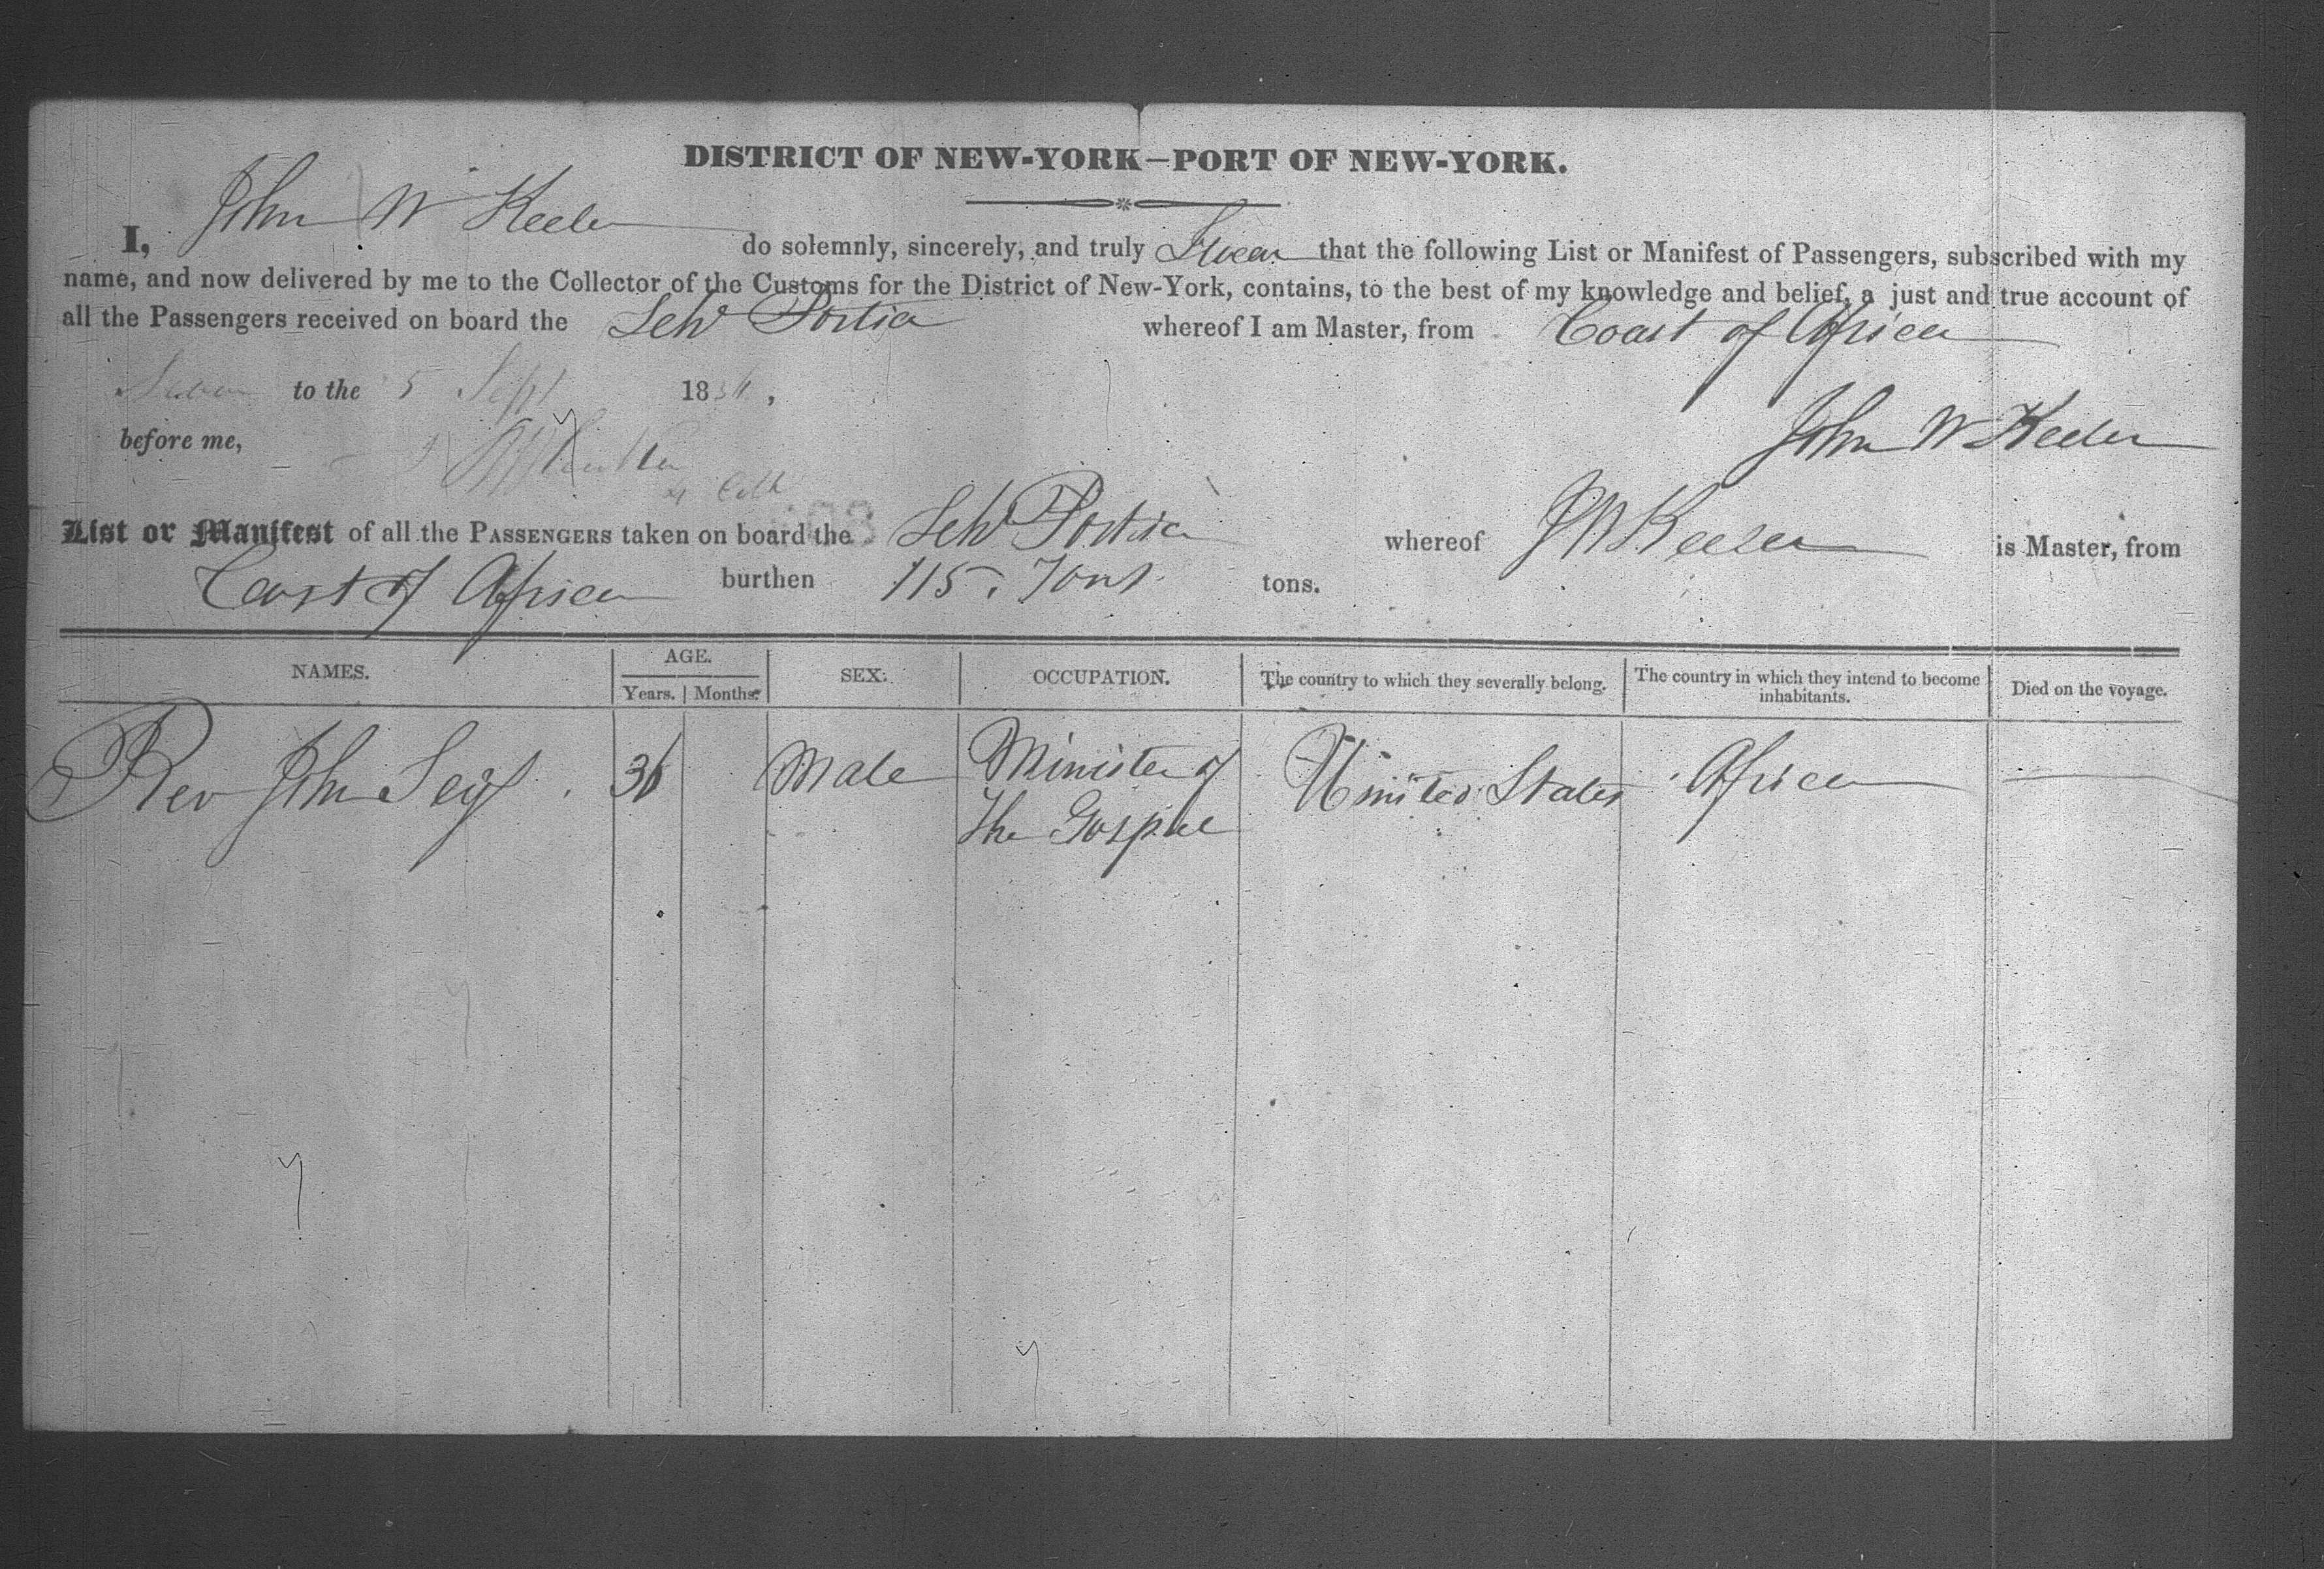 DISTRICT OF NEW-YORK—PORT OF NEW-YORK.
I, John W Keeler do solemnly, sincerely, and truly Swear that the following List or Manifest of Passengers, subscribed with my
name, and now delivered by me to the Collector of the Customs for the District of New-York, contains, to the best of my knowledge and belief, a just and true account of
all the Passengers received on board the Schr Portia whereof I am Master, from Coast of Africa
Sworn to the 5 Sept 1836,
John W Keeler
before me,
List or Manifest of all the PASSENGERS taken on board the Schr Portia whereof J W Keeler is Master, from
Coast of Africa burthen 115. Tons tons.
NAMES. AGE. Years. Months. SEX. OCCUPATION. The country to which they severally belong. The country in which they intend to become inhabitants. Died on the voyage.
Rev John Seys. 36 Male Minister of United States Africa
The Gospel